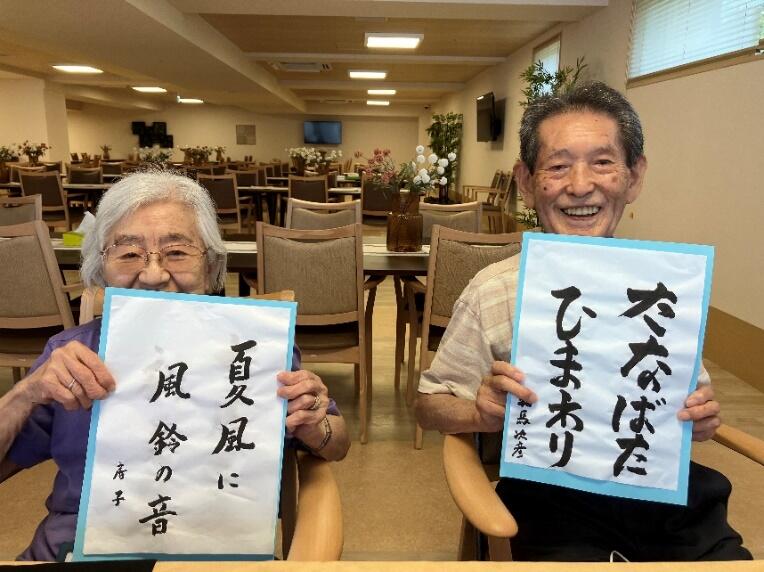 夏風に
風鈴の音
房子
たなばた
ひまわり